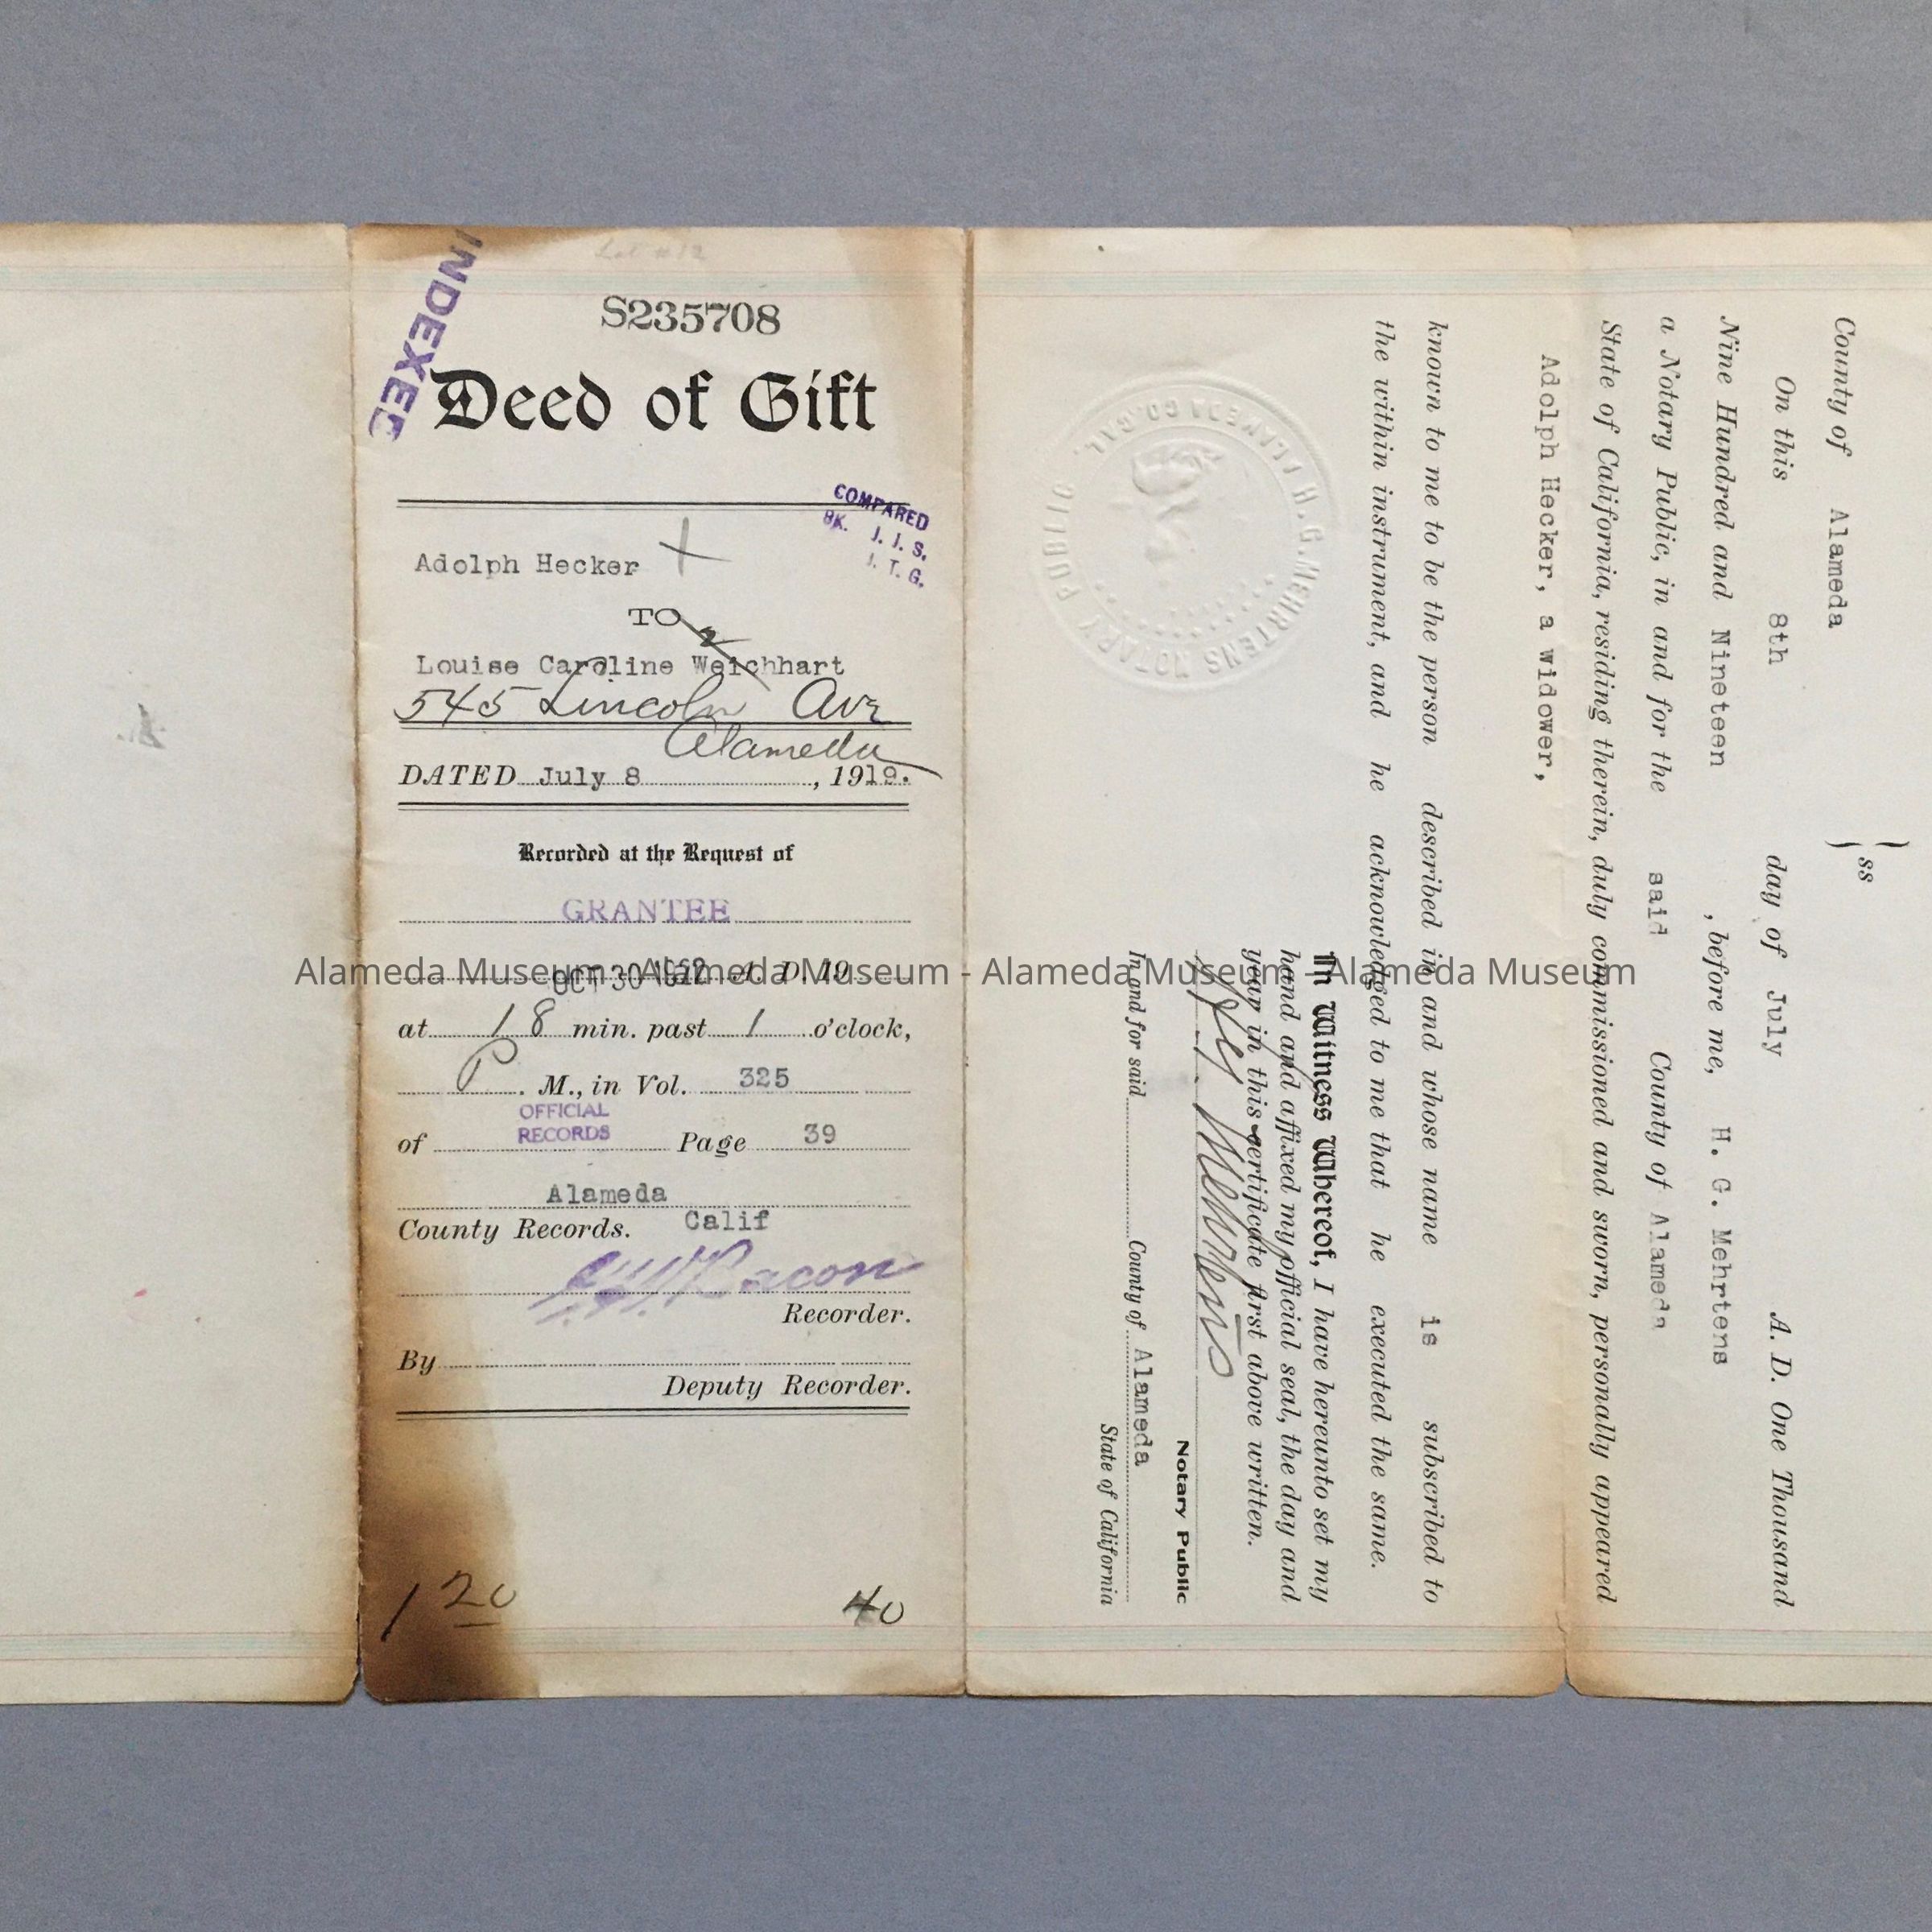 Lot #12
INDEXED
S235708
Deed of Gift
COMPARED
BK. J. J. S.
J. T. G.
Adolph Hecker
TO
Louise Caroline Weichhart
545 Lincoln Ave
Alameda
DATED July 8, 1919.
Recorded at the Request of
GRANTEE
OCT 30 A. D. 19
at 18 min. past 1 o'clock,
P. M., in Vol. 325
of OFFICIAL RECORDS Page 39
Alameda
County Records. Calif
G.W. Bacon
Recorder.
By
Deputy Recorder.
1 20
40
County of Alameda } ss
On this 8th day of July A. D. One Thousand
Nine Hundred and Nineteen, before me, H. G. Mehrtens
a Notary Public, in and for the said County of Alameda
State of California, residing therein, duly commissioned and sworn, personally appeared
Adolph Hecker, a widower,
known to me to be the person described in and whose name is subscribed to
the within instrument, and he acknowledged to me that he executed the same.
In Witness Whereof, I have hereunto set my
hand and affixed my official seal, the day and
year in this certificate first above written.
H. G. Mehrtens
Notary Public
In and for said County of Alameda
State of California
H. G. MEHRTENS NOTARY PUBLIC ALAMEDA CO. CAL.
Alameda Museum - Alameda Museum - Alameda Museum - Alameda Museum